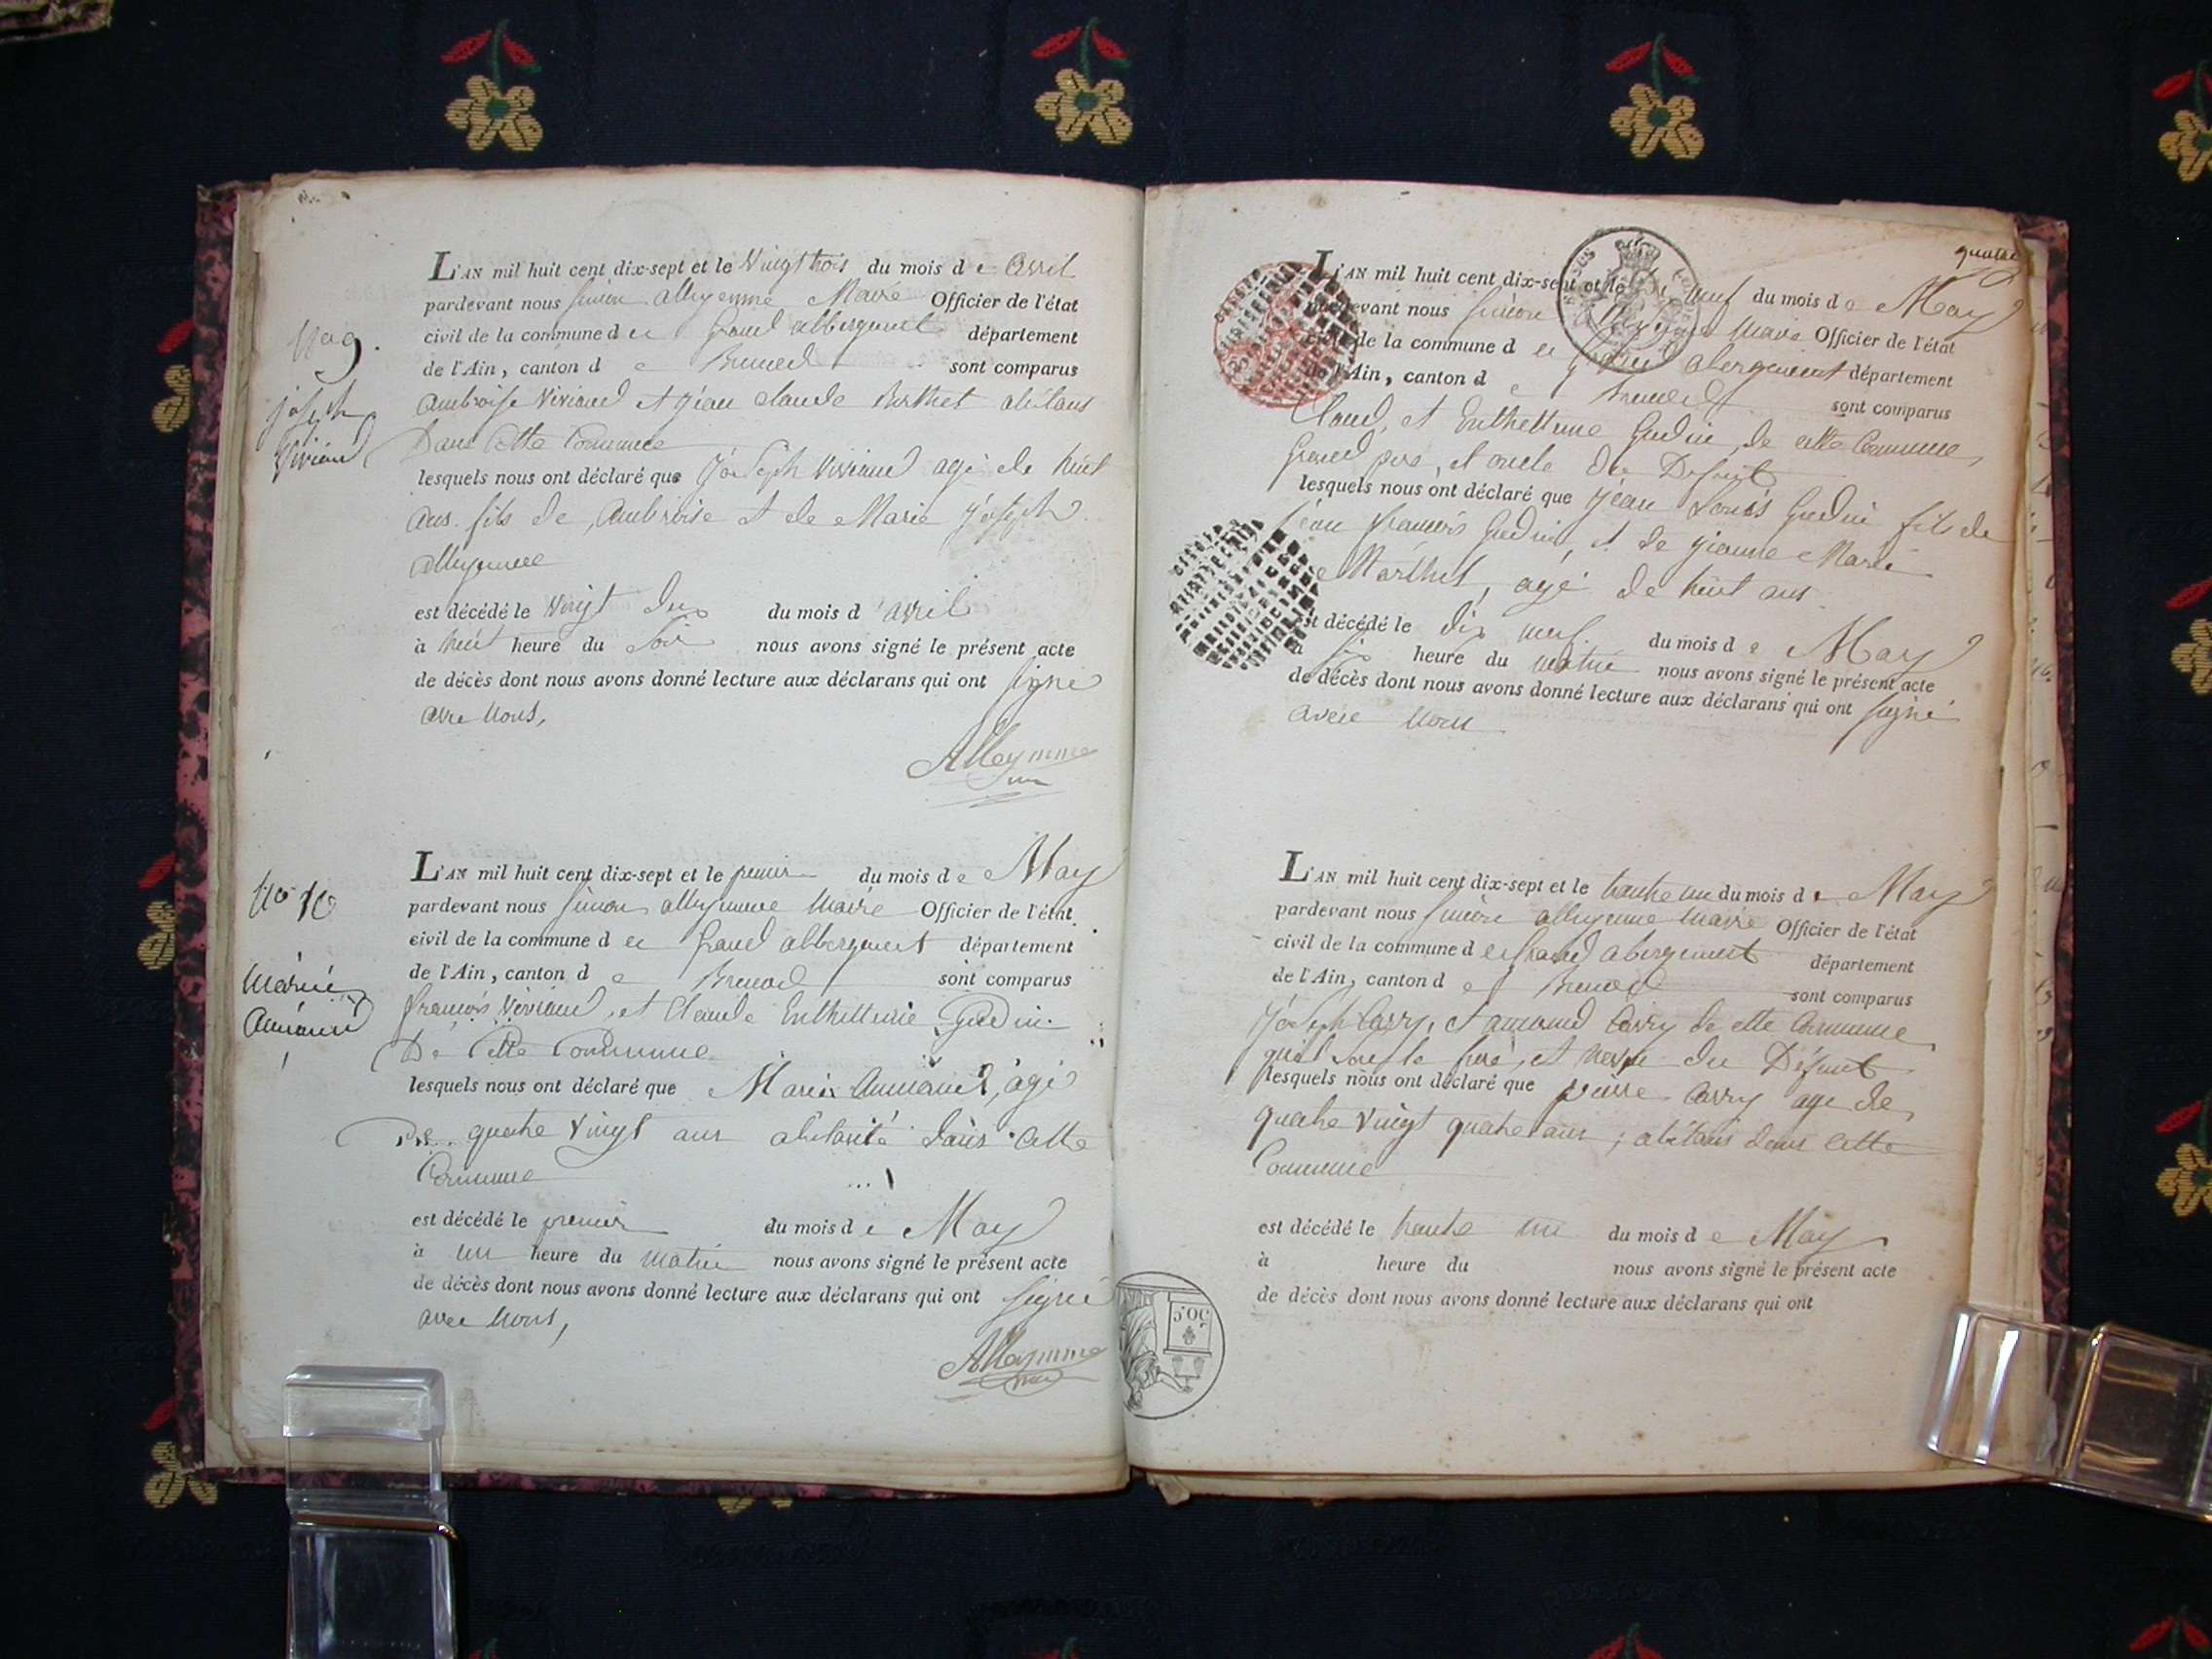 L'AN mil huit cent dix-sept et le vingt trois du mois de Avril
pardevant nous Simon Alleyemme Maire Officier de l'état
civil de la commune de Grand abbergement département
de l'Ain, canton de Brenod sont comparus
Ambroise Viviand et jean claude Berthet abitans
Dans Cette Commune
lesquels nous ont déclaré que joseph Viviand agé de huit
ans fils de Ambroise et de Marie joseph
est décédé le vingt deux du mois d avril
à huit heure du soir nous avons signé le présent acte
de décès dont nous avons donné lecture aux déclarans qui ont signé
avec nous,
No 9.
joseph
Viviand
L'AN mil huit cent dix-sept et le premier du mois de May
pardevant nous Simon Maire Officier de l'état
civil de la commune de Grand abbergement département
de l'Ain, canton de Brenod sont comparus
françois Viviand, et Claude Enthelmie Gudin
De Cette Commune
lesquels nous ont déclaré que Marie Armand, agé
De quatre vingt ans abitante dans Cette
Commune
est décédé le premier du mois de May
à un heure du matin nous avons signé le présent acte
de décès dont nous avons donné lecture aux déclarans qui ont signé
avec nous,
No 10
Marie
quatre
L'AN mil huit cent dix-sept et le dix neuf du mois de May
pardevant nous Simon Maire Officier de l'état
civil de la commune de Grand abergement département
de l'Ain, canton de Brenod sont comparus
Claud, et Gudin, de cette Commune
Grand pere, et oncle du Defunt
lesquels nous ont déclaré que jean Louis Gudin fils de
jean françois Gudin, et de jeanne Marie
agé de huit ans
est décédé le dix neuf. du mois de May
à six heure du matin nous avons signé le présent acte
de décès dont nous avons donné lecture aux déclarans qui ont signé
avec nous
L'AN mil huit cent dix-sept et le trante un du mois de May
pardevant nous Simon Maire Officier de l'état
civil de la commune de Grand abergement département
de l'Ain, canton de Brenod sont comparus
joseph Carry, et amand Carry de cette Commune
du Défunt
lesquels nous ont déclaré que pierre Carry agé de
quatre vingt quatre ans, abitans dans cette
Commune
est décédé le trante un du mois de May
à heure du nous avons signé le présent acte
de décès dont nous avons donné lecture aux déclarans qui ont
50.C